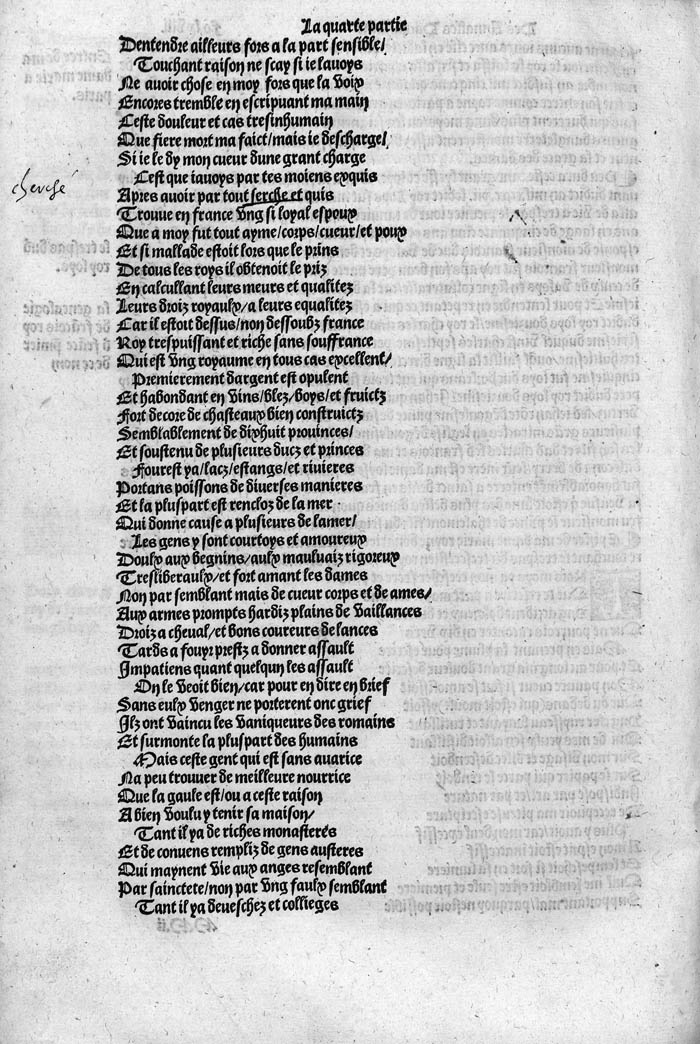 La quarte partie
Dentendre ailleurs fors a la part sensible/
Touchant raison ne scay si ie lavoys
Ne avoir chose en moy fors que la voix
Encores tremble en escripuant ma main
Ceste douleur et cas tresinhumain
Que fiere mort ma faict/mais ie descharge/
Si ie le dy mon cueur dune grant charge
Cest que iavoys par tes moiens exquis
cherché
Apres avoir par tout serche et quis
Trouve en france vng si loyal espoux
Que a moy fut tout ayme/corps/cueur/et poux
Et si mallade estoit lors que le prins
De tous les roys il obtenoit le priz
En calcullant leurs meurs et qualitez
Leurs droiz royaulx/a leurs equalitez
Car il estoit dessus/non dessoubz france
Roy trespuissant et riche sans souffrance
Qui est vng royaume en tous cas excellent/
Premierement dargent est opulent
Et habondant en vins/blez/boys/et fruictz
Fort decore de chasteaux bien construictz
Semblablement de dixhuit provinces/
Et soustenu de plusieurs ducz et princes
Fourest ya/lacz/estangs/et rivieres
Portans poissons de diverses manieres
Et la pluspart est rencloz de la mer
Qui donne cause a plusieurs de lamer/
Les gens y sont courtoys et amoureux
Doulx aux begnins/aulx maulvaiz rigoreux
Tresliberaulx/et fort amant les dames
Non par semblant mais de cueur corps et de ames/
Aux armes prompts hardiz plains de vaillances
Droiz a cheval/et bons coureurs de lances
Tards a fouyr prestz a donner assault
Impatiens quant quelqun les assault
On le veoit bien/car pour en dire en brief
Sans eulx venger ne porterent onc grief
Ilz ont vaincu les vaniqueurs des romains
Et surmonte la pluspart des humains
Mais ceste gent qui est sans avarice
Na peu trouver de meilleure nourrice
Que la gaule est/ou a ceste raison
A bien voulu y tenir sa maison/
Tant il ya de riches monasteres
Et de convens rempliz de gens austeres
Qui maynent vie aux anges resemblant
Par sainctete/non par vng faulx semblant
Tant il ya deveschez et collieges